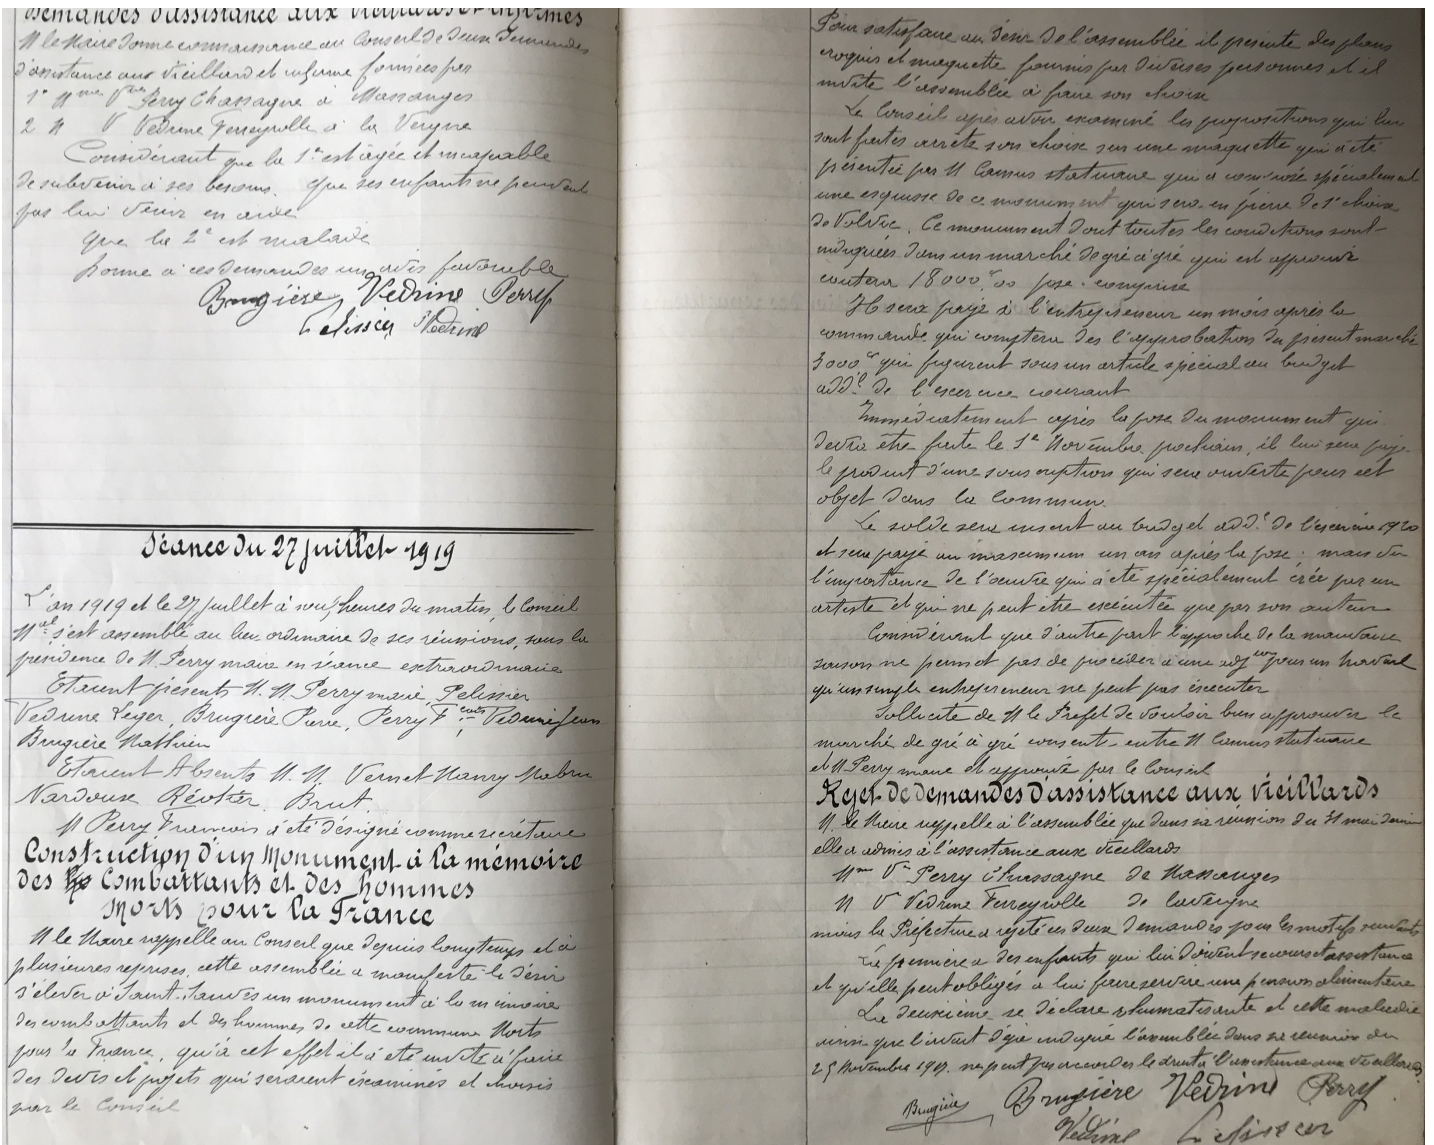 Demandes d'assistance aux vieillards et infirmes
M le Maire donne connaissance au Conseil de deux demandes
d'assistance aux vieillard et infirme formées par
1° Mme Vve Perry Chassagne à Massanges
2 M V Vedrine Ferreyrolle à la Vergne
Considérant que la 1e est âgée et incapable
de subvenir à ses besoins. que ses enfants ne peuvent
pas lui venir en aide
que la 2e est malade
Donne à ces demandes un avis favorable
Brugière Vedrine Perry
Pelissier Vedrine
Séance du 27 juillet 1919
L'an 1919 et le 27 juillet à neuf heures du matin, le Conseil
Mal s'est assemblé au lieu ordinaire de ses réunions, sous la
présidence de M. Perry maire en séance extraordinaire
Etaient présents M. M. Perry maire, Pelissier
Vedrine Leger, Brugière Pierre, Perry Fçois Vedrine Jean
Brugière Mathieu
Etaient Absents M. M. Vernet Manry Mabru
Nardoux Brut
M Perry François a été désigné comme secrétaire
Construction d'un Monument à la mémoire
des Combattants et des hommes
Morts pour la France
M le Maire rappelle au Conseil que depuis longtemps et à
plusieures reprises, cette assemblée a manifesté le désir
d'élever à Saint-Sandoux un monument à la mémoire
des combattants et des hommes de cette commune Morts
pour la France, qu'à cet effet il a été invité à faire
des devis et projets qui seraient examinés et choisis
par le Conseil
Pour satisfaire au désir de l'assemblée il présente des plans
croquis et maquette fournis par diverses personnes et il
invite l'assemblée à faire son choix
Le Conseil après avoir examiné les propositions qui lui
sont faites arrête son choix sur une maquette qui a été
présentée par M Camus statuaire qui a composé spécialement
une esquisse de ce monument qui sera en pierre de 1e choix
de Volvic. Ce monument dont toutes les conditions sont
indiquées dans un marché de gré à gré qui est approuvé
coutera 18000f,00 pose comprise
Il sera payé à l'entrepreneur un mois après la
commande qui comptera dès l'approbation du présent marché
3000f qui figurent sous un article spécial au budget
addel de l'exercice courant
Immédiatement après la pose du monument qui
devra être faite le 1e Novembre prochain, il lui sera payé
le produit d'une souscription qui sera ouverte pour cet
objet dans la Commune
Le solde sera inscrit au budget addel de l'exercice 1920
et sera payé au maximum un an après la pose : mais vu
l'importance de l'œuvre qui a été spécialement créée par un
artiste et qui ne peut être exécutée que par son auteur
Considérant que d'autre part l'approche de la mauvaise
saison ne permet pas de procéder à une adjon pour un travail
qu'un simple entrepreneur ne peut pas exécuter
Sollicite de M le Préfet de vouloir bien approuver le
marché de gré à gré consent entre M Camus statuaire
et M Perry maire et approuvé par le Conseil
Rejet de demandes d'assistance aux vieillards
M. le Maire rappelle à l'assemblée que dans sa réunion du 31 mai dernier
elle a admis à l'assistance aux vieillards
Mme Ve Perry Chassagne de Massanges
M V Vedrine Ferreyrolle de Lavergne
mais la Préfecture a rejeté ces deux demandes pour les motifs suivants
La première a des enfants qui lui doivent secours et assistance
et qu'elle peut obligés à lui faire servire une pension alimentaire
La deuxième se déclare rhumatisante et cette maladie
ainsi que l'avait déjà indiqué l'assemblée dans sa réunion du
25 Novembre ne peut pas accorder le droit à l'assistance aux vieillards
Brugière Brugière Vedrine Perry
Vedrine Pelissier